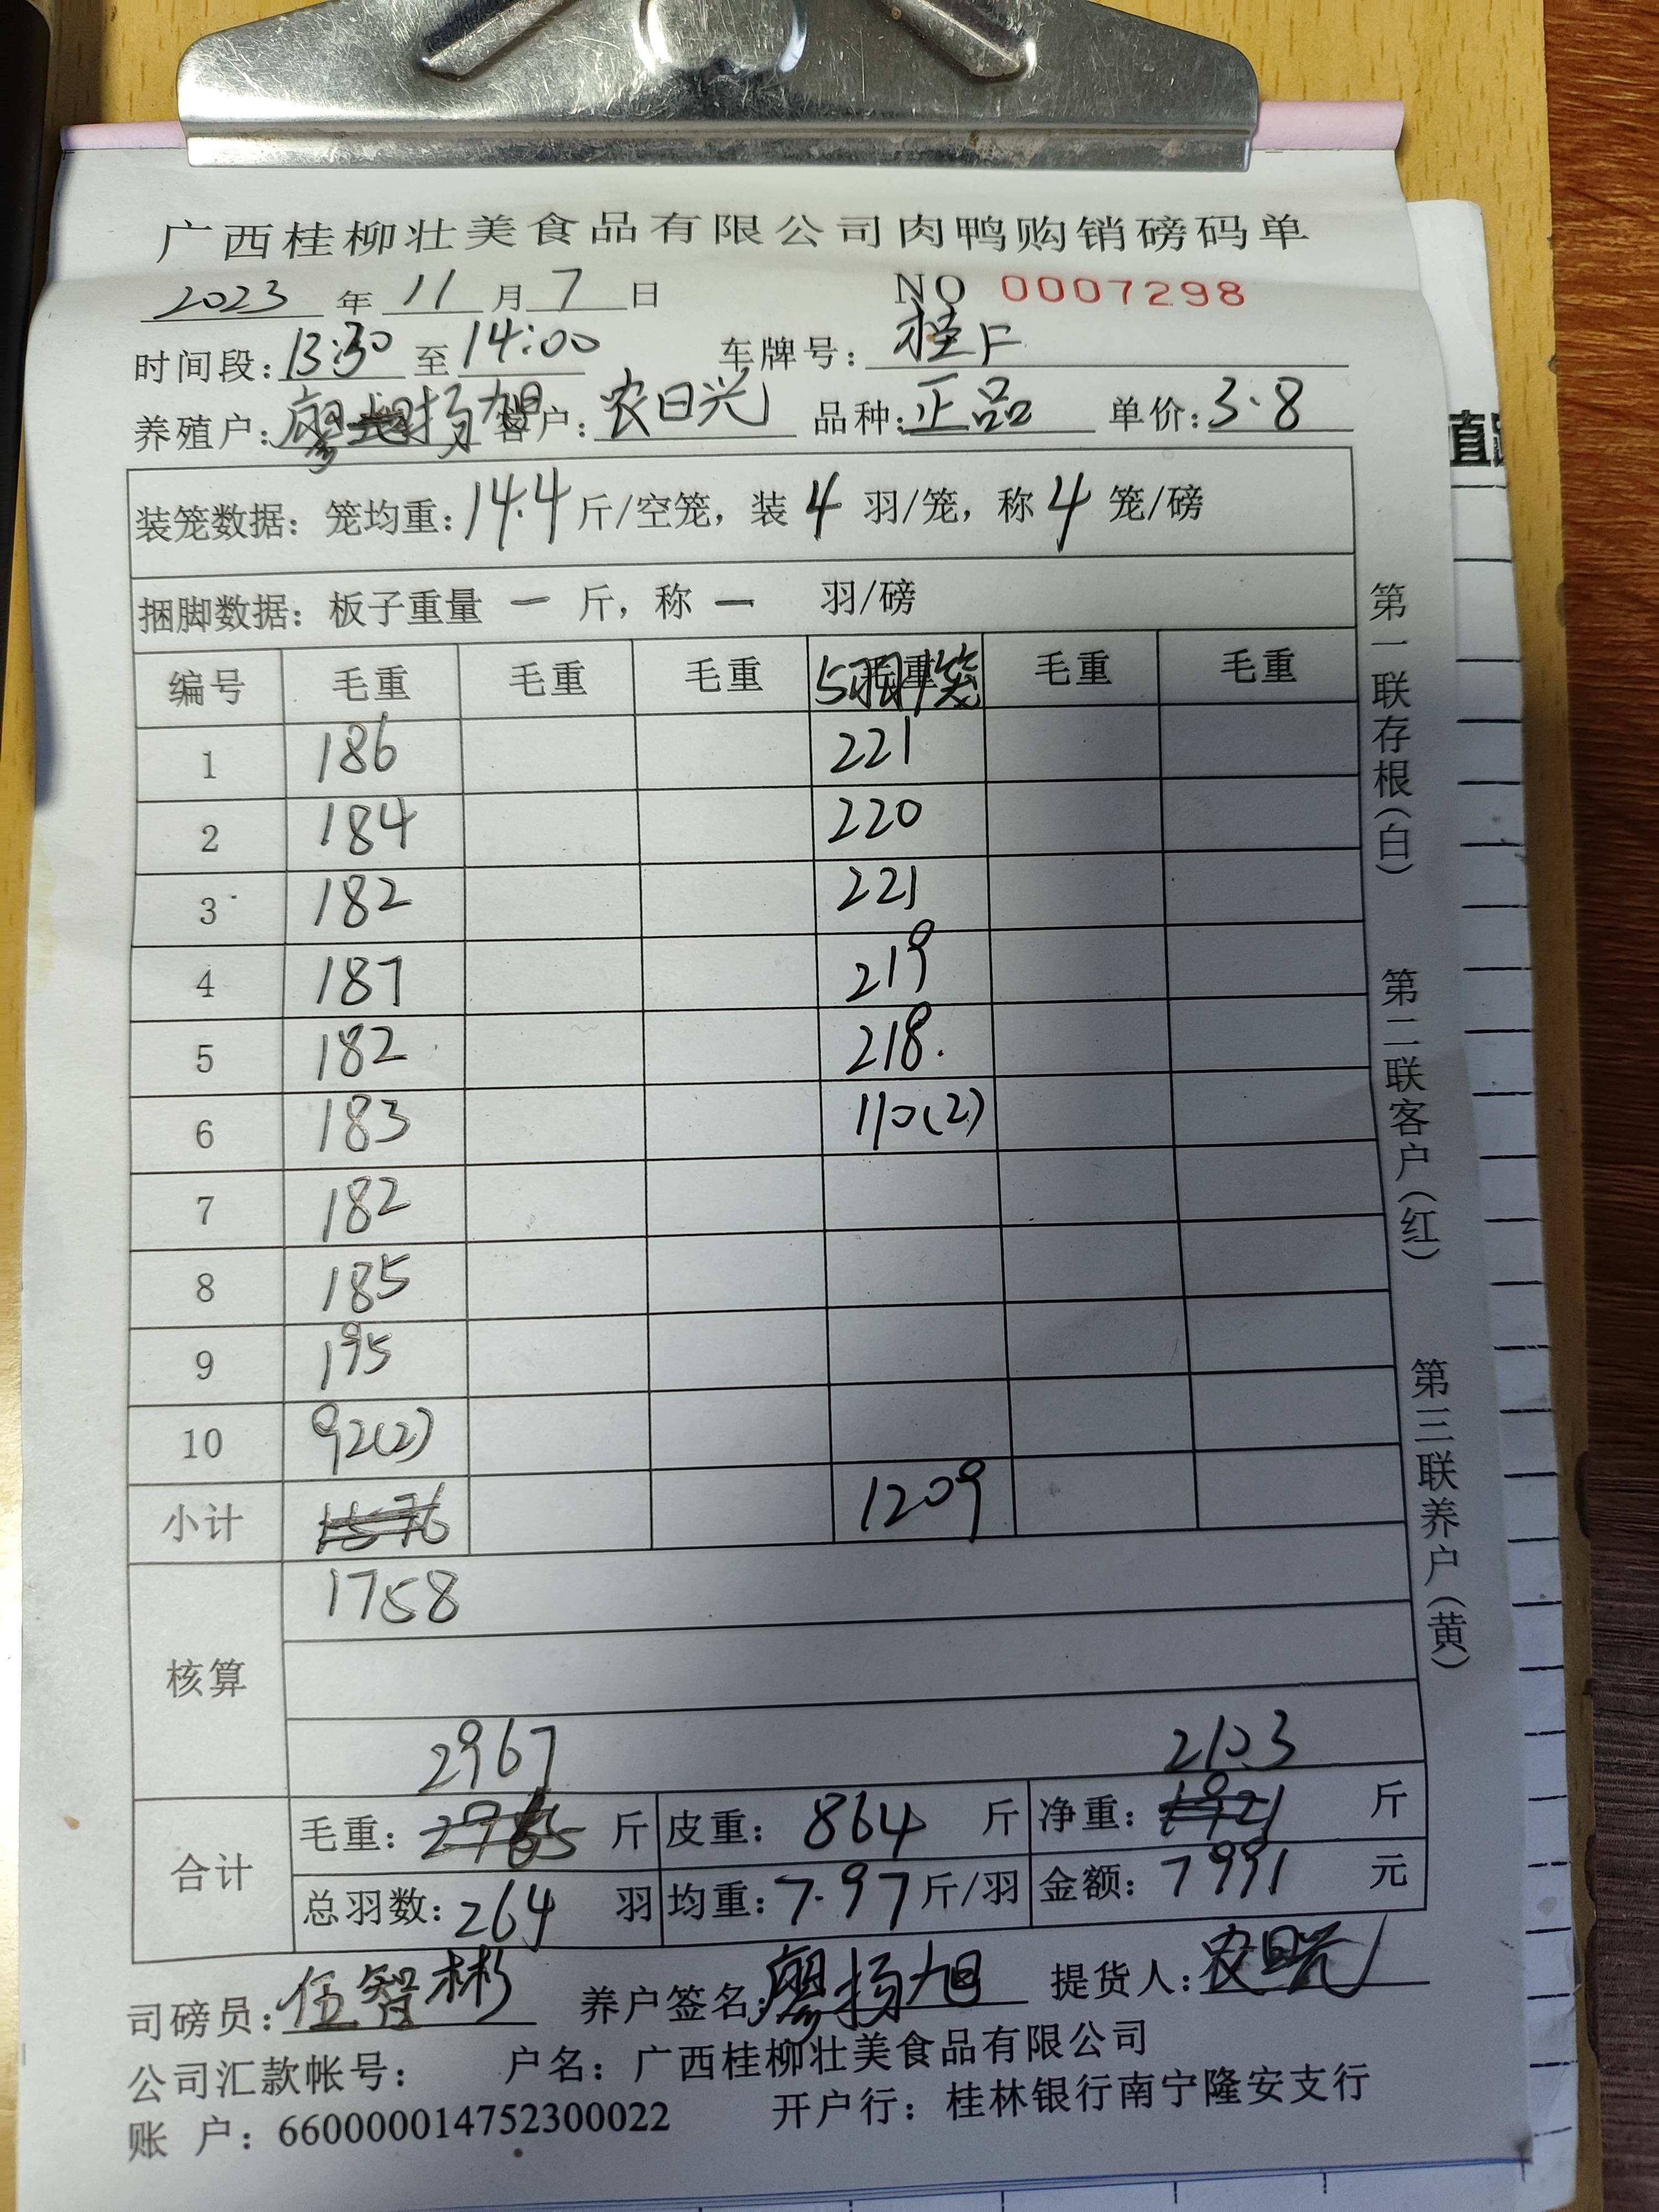 广西桂柳壮美食品有限公司肉鸭购销磅码单
2023 年 11 月 7 日 NO 0007298
时间段: 13:30 至 14:00 车牌号: 桂F
养殖户: 廖扬旭 客户: 农日兴 品种: 正品 单价: 3.8
装笼数据: 笼均重: 14.4 斤/空笼, 装 4 羽/笼, 称 4 笼/磅
捆脚数据: 板子重量 一 斤, 称 一 羽/磅
编号 毛重 毛重 毛重 毛重 5羽1笼 毛重 毛重
1 186 221
2 184 220
3 182 221
4 187 219
5 182 218
6 183 110(2)
7 182
8 185
9 195
10 92(2)
小计 1576 1209
核算 1758
2967 2103
合计 毛重: 斤 皮重: 864 斤 净重: 1921 斤
总羽数: 264 羽 均重: 7.97 斤/羽 金额: 7991 元
司磅员: 伍智彬 养户签名: 廖扬旭 提货人: 农
公司汇款帐号: 户名: 广西桂柳壮美食品有限公司
账 户: 660000014752300022 开户行: 桂林银行南宁隆安支行
第一联存根(白) 第二联客户(红) 第三联养户(黄)
直